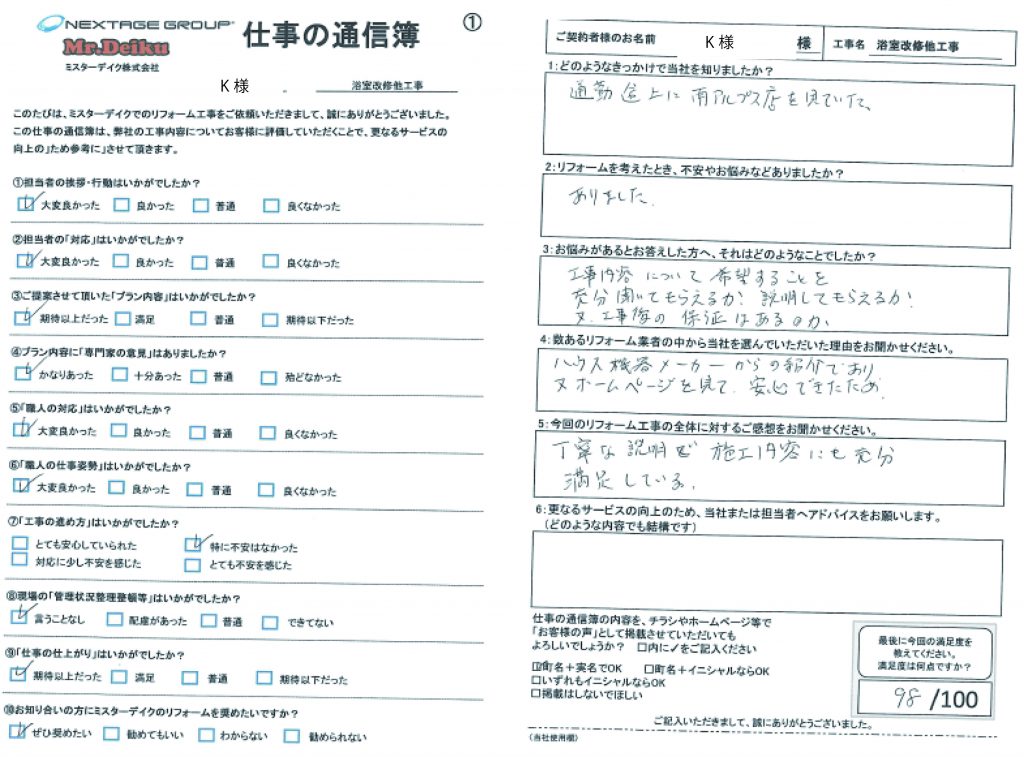 NEXTAGE GROUP
Mr.Deiku
ミスターデイク株式会社
仕事の通信簿
①
K 様
浴室改修他工事
このたびは、ミスターデイクでのリフォーム工事をご依頼いただきまして、誠にありがとうございました。
この仕事の通信簿は、弊社の工事内容についてお客様に評価していただくことで、更なるサービスの
向上の」ため参考に」させて頂きます。
①担当者の挨拶・行動はいかがでしたか?
大変良かった 良かった 普通 良くなかった
②担当者の「対応」はいかがでしたか?
大変良かった 良かった 普通 良くなかった
③ご提案させて頂いた「プラン内容」はいかがでしたか?
期待以上だった 満足 普通 期待以下だった
④プラン内容に「専門家の意見」はありましたか?
かなりあった 十分あった 普通 殆どなかった
⑤「職人の対応」はいかがでしたか?
大変良かった 良かった 普通 良くなかった
⑥「職人の仕事姿勢」はいかがでしたか?
大変良かった 良かった 普通 良くなかった
⑦「工事の進め方」はいかがでしたか?
とても安心していられた 特に不安はなかった
対応に少し不安を感じた とても不安を感じた
⑧現場の「管理状況整理整頓等」はいかがでしたか?
言うことなし 配慮があった 普通 できてない
⑨「仕事の仕上がり」はいかがでしたか?
期待以上だった 満足 普通 期待以下だった
⑩お知り合いの方にミスターデイクのリフォームを奨めたいですか?
ぜひ奨めたい 勧めてもいい わからない 勧められない
ご契約者様のお名前 K 様 様 工事名 浴室改修他工事
1:どのようなきっかけで当社を知りましたか?
通勤途上に南アルプス店を見ていた。
2:リフォームを考えたとき、不安やお悩みなどありましたか?
ありました.
3:お悩みがあるとお答えした方へ、それはどのようなことでしたか?
工事内容について希望することを
充分聞いてもらえるか? 説明してもらえるか?
又、工事後の保証はあるのか、
4:数あるリフォーム業者の中から当社を選んでいただいた理由をお聞かせください。
ハウス機器メーカーからの紹介であり
又ホームページを見て、安心できたため.
5:今回のリフォーム工事の全体に対するご感想をお聞かせください。
丁寧な説明で 施工内容にも充分
満足している.
6:更なるサービスの向上のため、当社または担当者へアドバイスをお願いします。
(どのような内容でも結構です)
仕事の通信簿の内容を、チラシやホームページ等で
「お客様の声」として掲載させていただいても
よろしいでしょうか? □内に✓をご記入ください
町名+実名でOK □町名+イニシャルならOK
□いずれもイニシャルならOK
□掲載はしないでほしい
最後に今回の満足度を
教えてください。
満足度は何点ですか?
98 /100
ご記入いただきまして、誠にありがとうございました。
(当社使用欄)